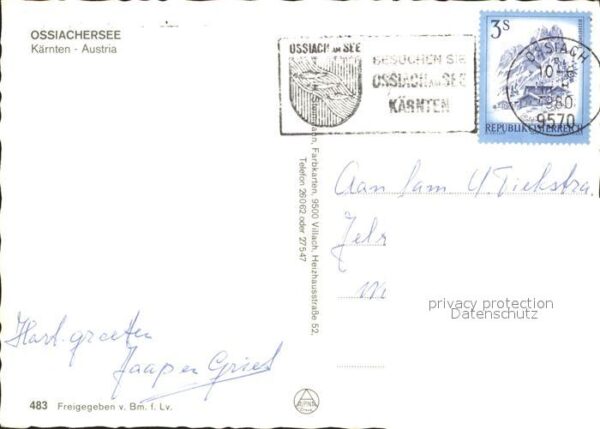 OSSIACHERSEE
Kärnten - Austria
OSSIACH AM SEE
BESUCHEN SIE
OSSIACH AM SEE
KÄRNTEN
3S
OSSIACH
1980
9570
REPUBLIK ÖSTERREICH
Farbkarten, 9500 Villach, Herzhausstraße 52,
Telefon 26062 oder 27547
Aan fam
privacy protection
Datenschutz
Hart. groeten
Jaap en Griet
483 Freigegeben v. Bm. f. Lv.